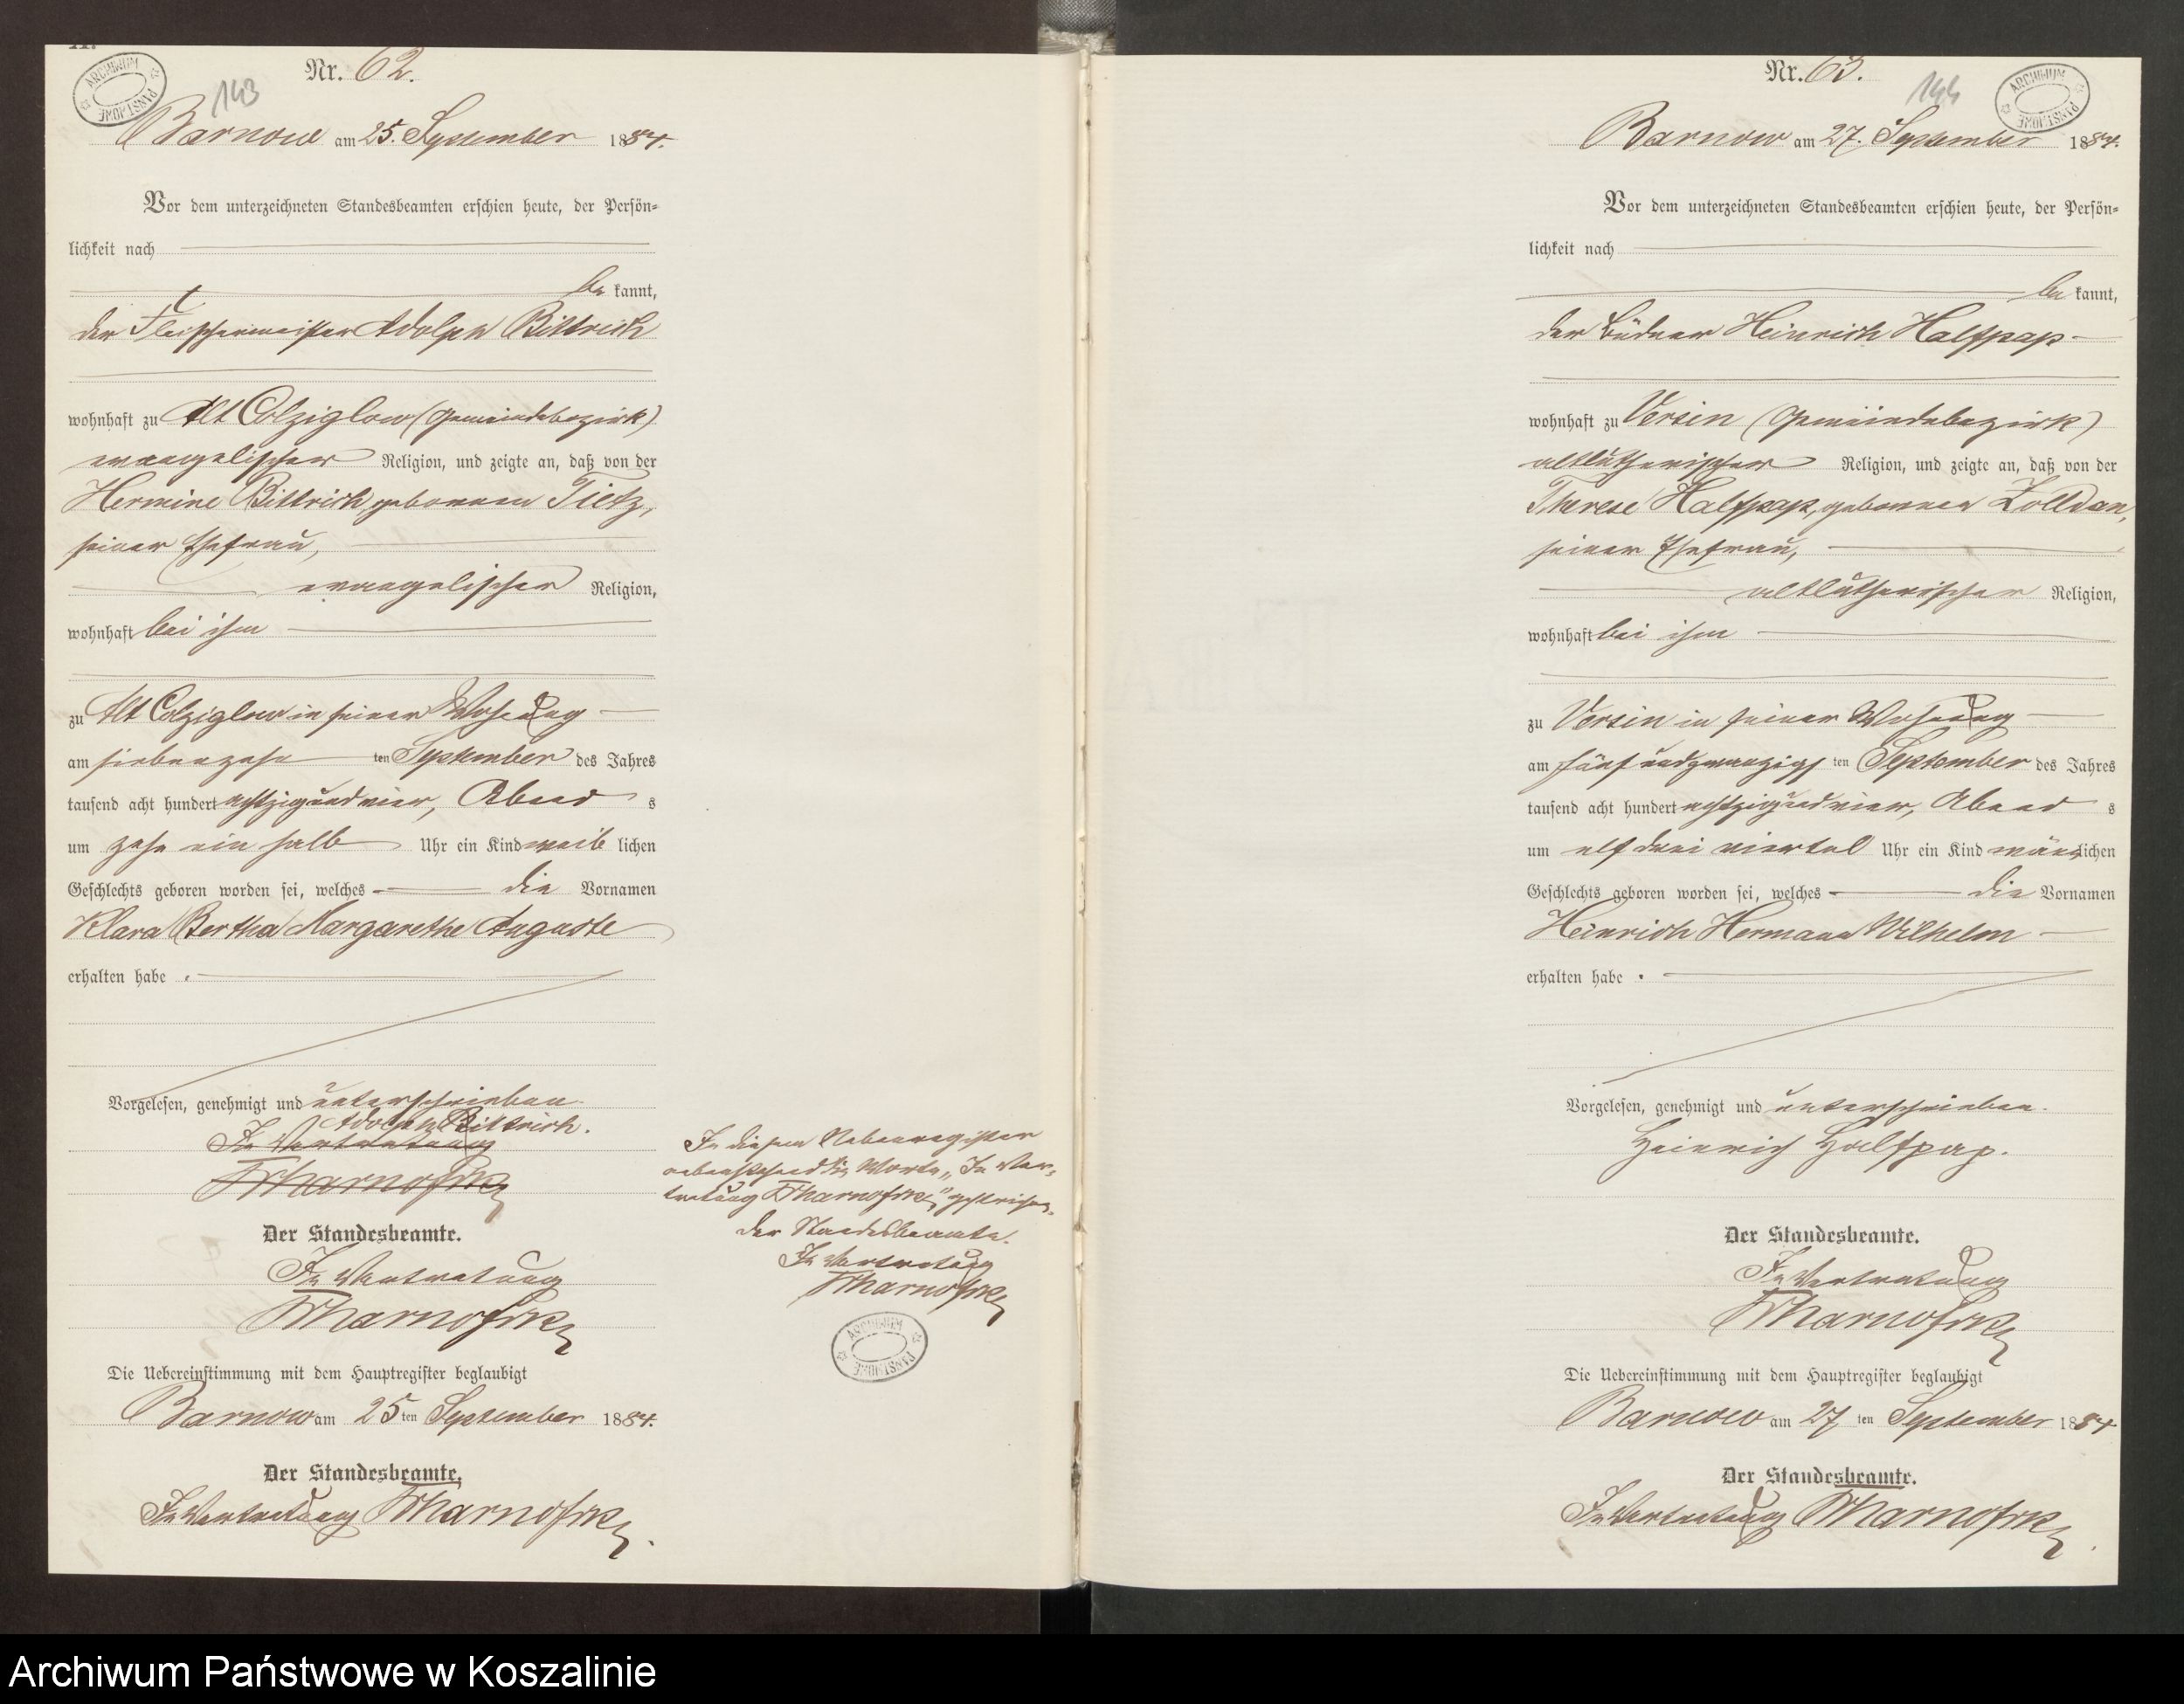 A.
ARCHIWUM PAŃSTWOWE
143
Nr. 62.
Barnow am 25. September 1884.
Vor dem unterzeichneten Standesbeamten erschien heute, der Persön-
lichkeit nach
be kannt,
der Fleischermeister Adolph Bittrich
wohnhaft zu Alt Colziglow (Gemeindebezirk)
evangelischer Religion, und zeigte an, daß von der
Hermine Bittrich, geborenen Tietz,
seiner Ehefrau,
evangelischer Religion,
wohnhaft bei ihm
zu Alt Colziglow in seiner Wohnung
am siebenzehn ten September des Jahres
tausend acht hundert achtzig und vier, Abend s
um zehn ein halb Uhr ein Kind weib lichen
Geschlechts geboren worden sei, welches die Vornamen
Klara Bertha Margarethe Auguste
erhalten habe.
Vorgelesen, genehmigt und unterschrieben.
Adolph Bittrich.
In Vertretung
Der Standesbeamte.
In Vertretung
Die Uebereinstimmung mit dem Hauptregister beglaubigt
Barnow am 25 ten September 1884.
Der Standesbeamte.
In Vertretung
In diesem Nebenregister
nebenstehend die Worte „In Ver-
tretung gestrichen.
Der Standesbeamte.
In Vertretung
ARCHIWUM PAŃSTWOWE
Nr. 63.
144
ARCHIWUM PAŃSTWOWE
Barnow am 27. September 1884.
Vor dem unterzeichneten Standesbeamten erschien heute, der Persön-
lichkeit nach
be kannt,
der Büdner Heinrich Halfpap
wohnhaft zu Versin (Gemeindebezirk)
altlutherischer Religion, und zeigte an, daß von der
Therese Halfpap, geborenen Zolldan,
seiner Ehefrau,
altlutherischer Religion,
wohnhaft bei ihm
zu Versin in seiner Wohnung
am fünf und zwanzigs ten September des Jahres
tausend acht hundert achtzig und vier, Abend s
um elf drei viertel Uhr ein Kind männ lichen
Geschlechts geboren worden sei, welches die Vornamen
Heinrich Hermann Wilhelm
erhalten habe.
Vorgelesen, genehmigt und unterschrieben.
Heinrich Halfpap.
Der Standesbeamte.
In Vertretung
Die Uebereinstimmung mit dem Hauptregister beglaubigt
Barnow am 27 ten September 1884
Der Standesbeamte.
In Vertretung
Archiwum Państwowe w Koszalinie